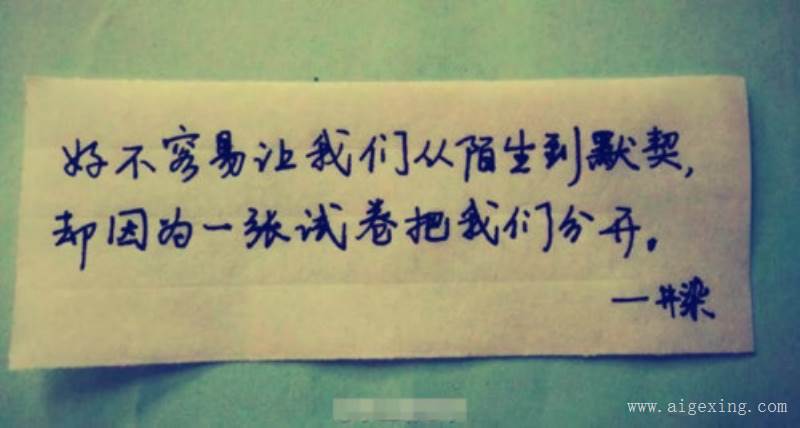 好不容易让我们从陌生到默契,
却因为一张试卷把我们分开。
—井染
www.aigexing.com